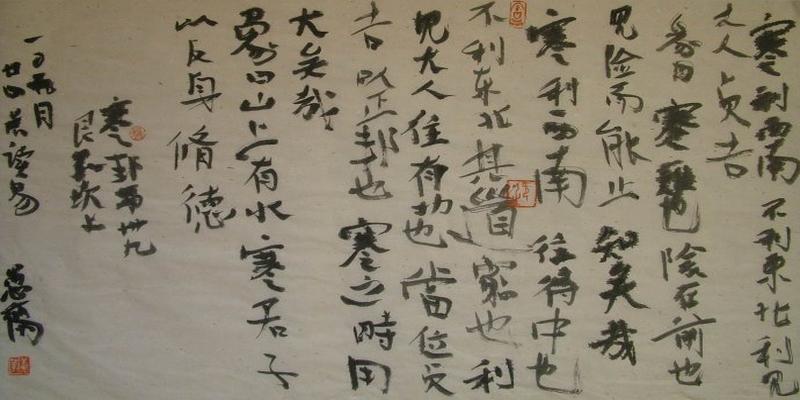 蹇利西南不利東北利見
大人貞吉
彖曰蹇難也險在前也
見險而能止知矣哉
蹇利西南往得中也
不利東北其道窮也利
見大人往有功也當位貞
吉以正邦也蹇之時用
大矣哉
象曰山上有水蹇君子
以反身脩德
蹇卦第卅九
艮下坎上